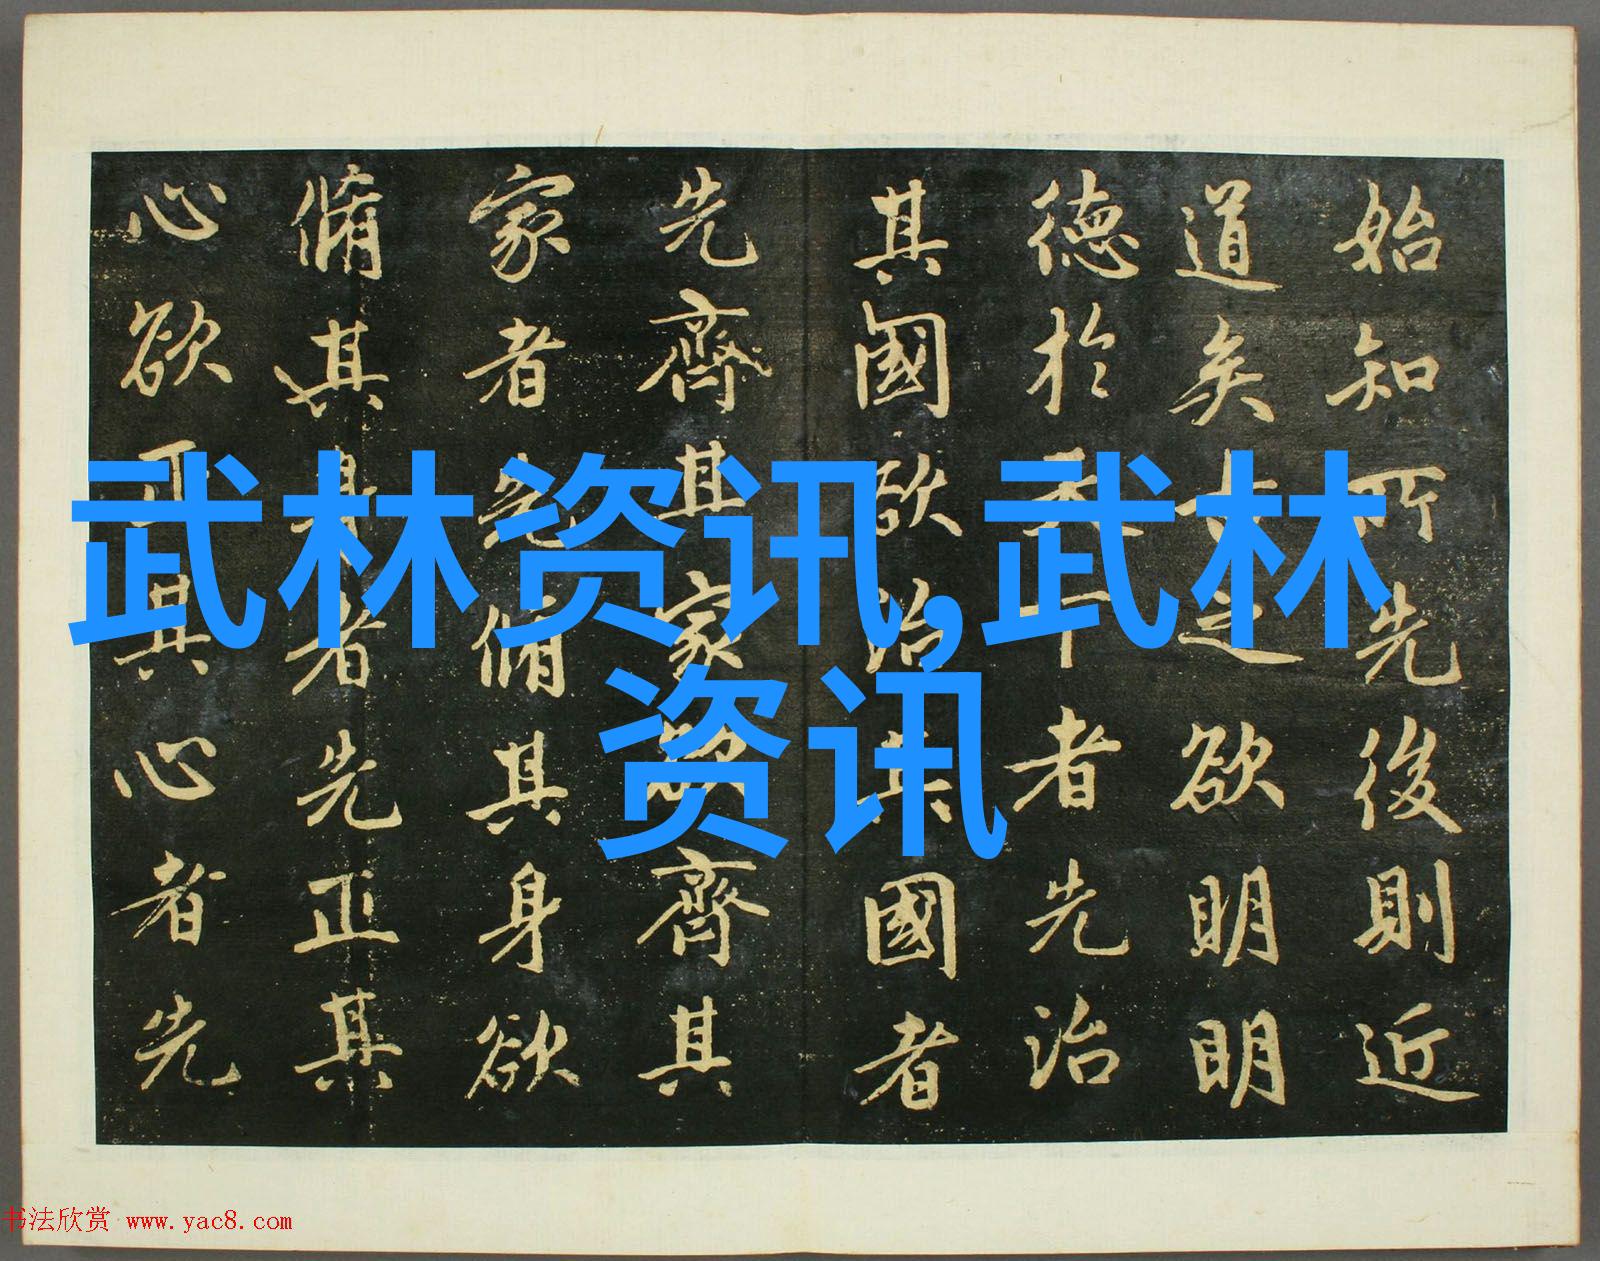 始知所先後則近
道矣古之欲明明
德於天下者先治
其國欲治其國者
先齊其家欲齊其
家者先脩其身欲
脩其身者先正其
心欲正其心者先
武林资讯,武林
资讯
书法欣赏 www.yac8.com